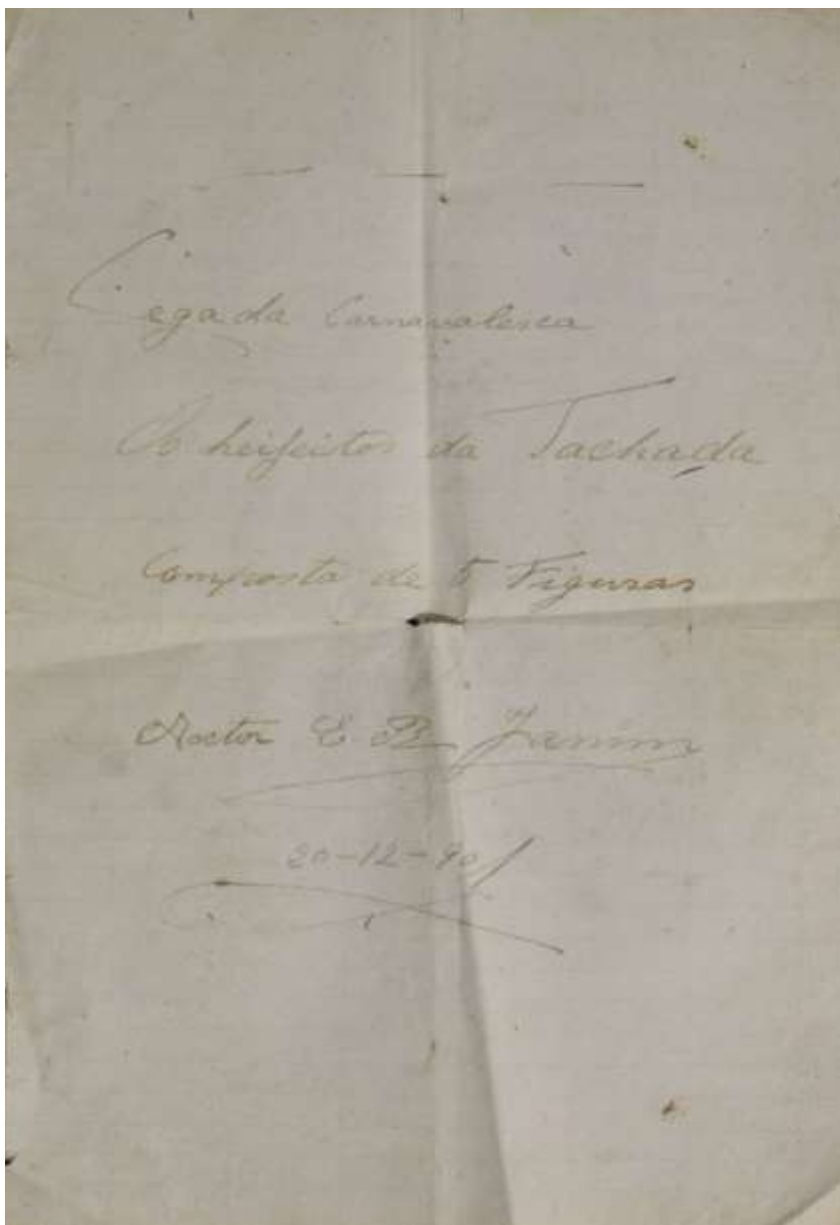 Cegada Carnavalesca
Os heifeitos da Tachada
Composta de 5 Figuras
Auctor E. B. Jamim
20-12-90